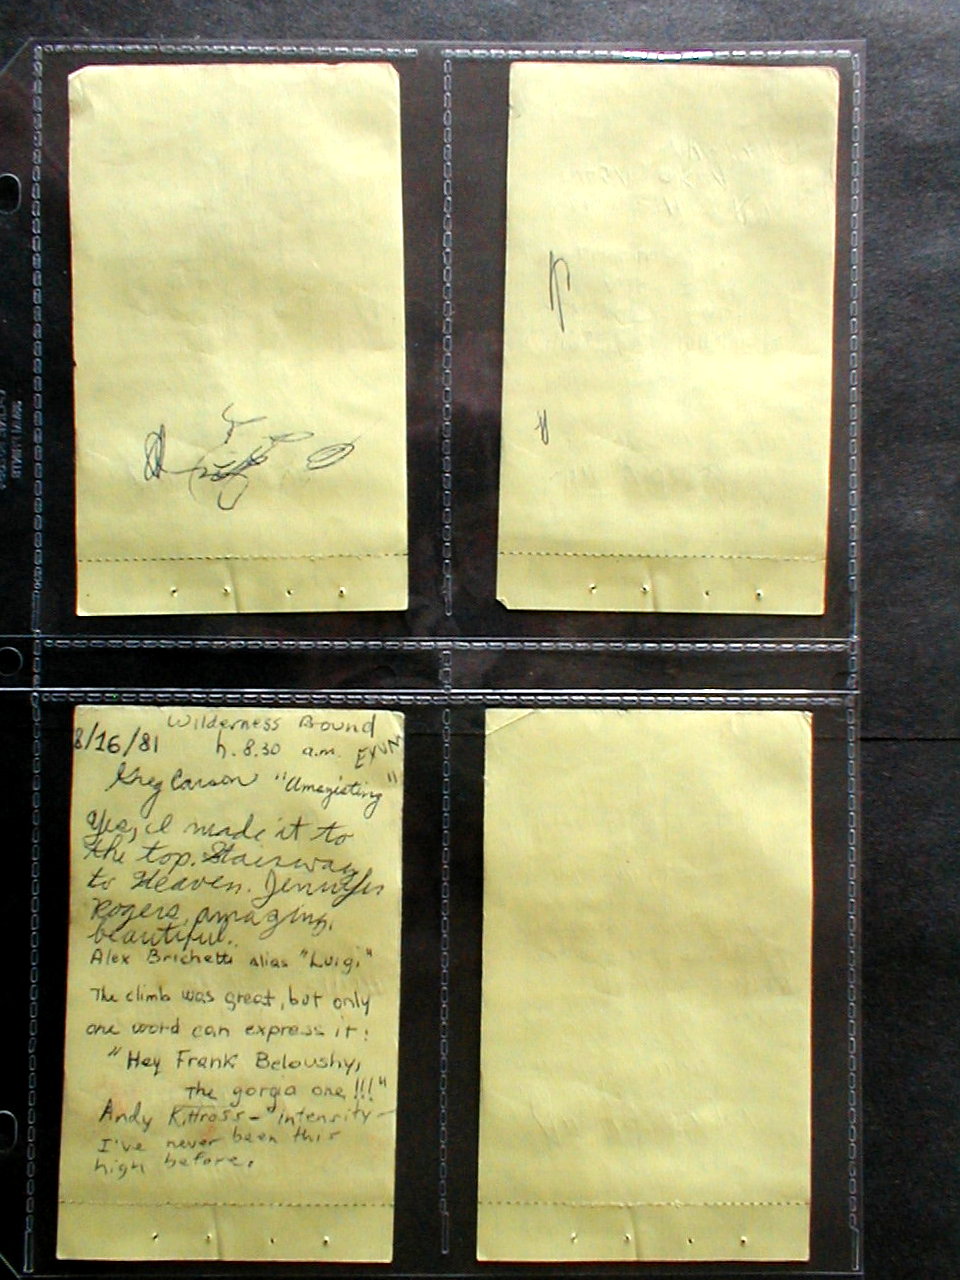 Wilderness Bound
8/16/81 h. 8.30 a.m. EXUM
Greg Carson "Amazisting"
Yes, I made it to
the top. Stairway
to Heaven. Jennifer
Rogers, amazing,
beautiful..
Alex Brichetti alias "Luigi"
The climb was great, but only
one word can express it:
"Hey Frank Beloushy,
The gorgia one!!!"
Andy Kittross - "intensity -
I've never been this
high before.